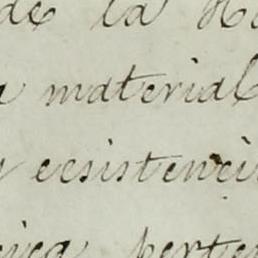 de la
material
ecsistenci
perte